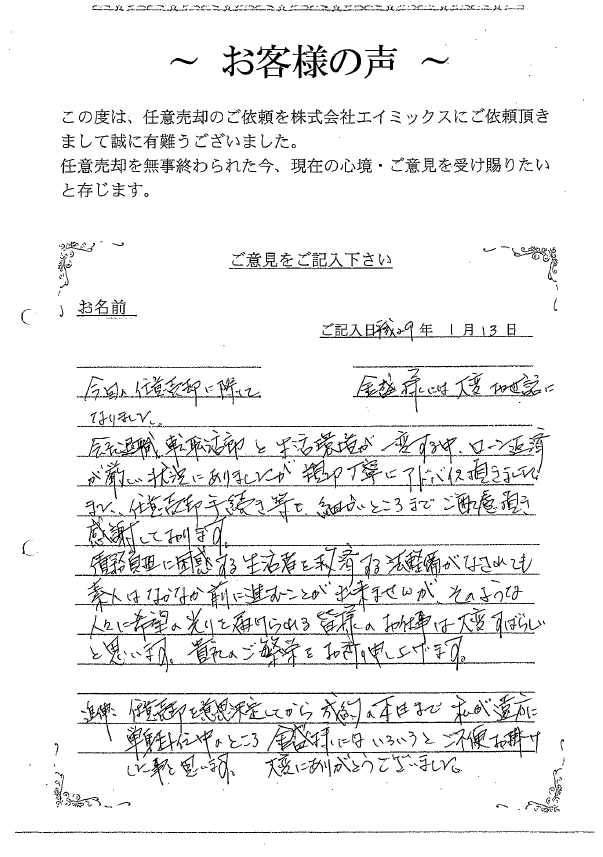 ～ お客様の声 ～
この度は、任意売却のご依頼を株式会社エイミックスにご依頼頂き
まして誠に有難うございました。
任意売却を無事終わられた今、現在の心境・ご意見を受け賜りたい
と存じます。
ご意見をご記入下さい
お名前
ご記入日 平成29年 1月13日
今回の任意売却に際して 金盛様には大変お世話に
なりました。
会社退職、転職活動と生活環境が一変する中、ローン返済
が厳しい状況にありましたが親切丁寧にアドバイス頂きました。
また、任意売却手続き等も、細かいところまでご配慮頂き
感謝しております。
債務負担に困惑する生活者を救済する法整備がなされても
素人はなかなか前に進むことが出来ませんが、そのような
人々に希望の光りを届けられる皆様のお仕事は大変すばらしい
と思います。貴社のご繁栄をお祈り申し上げます。
追伸: 任意売却を意思決定してから成約の本日まで私が遠方に
単身赴任中のところ金盛様にはいろいろとご不便お掛け
した事と思います。 大変にありがとうございました。